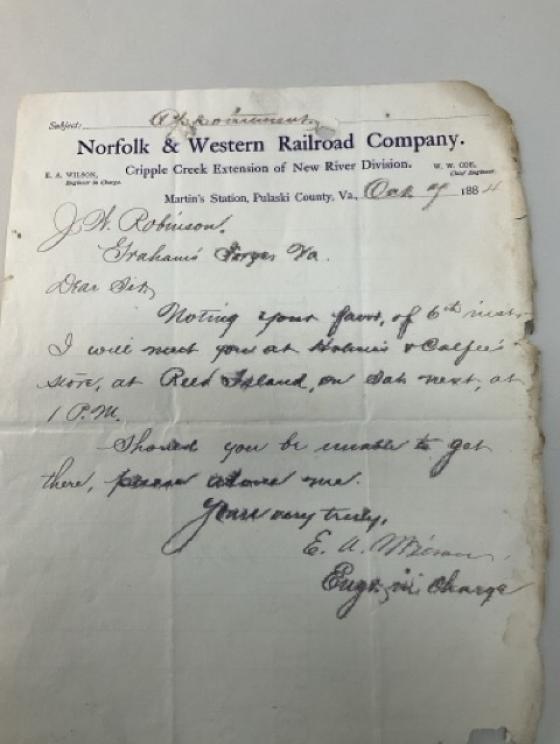 Subject: Appointment
Norfolk & Western Railroad Company.
E. A. WILSON, Engineer in Charge.
Cripple Creek Extension of New River Division.
W. W. COE, Chief Engineer.
Martin's Station, Pulaski County, Va., Oct. 9 1884
J. W. Robinson.
Graham's Forge Va.
Dear Sir,
Noting your favor, of 6th inst,
I will meet you at & Calfee's
store, at Reed Island, on Sat. next, at
1 P.M.
Should you be unable to get
there, please me.
Yours very truly,
E. A. Wilson.
Engr. in Charge